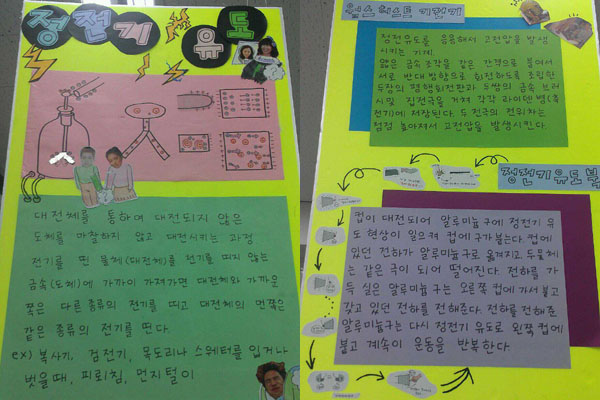 정전기 유도
대전체를 통하여 대전되지 않은
도체를 마찰하지 않고 대전시키는 과정
전기를 띤 물체(대전체)를 전기를 띠지 않는
금속(도체)에 가까이 가져가면 대전체와 가까운
쪽은 다른 종류의 전기를 띠고 대전체의 먼쪽은
같은 종류의 전기를 띤다.
ex) 복사기, 검전기, 목도리나 스웨터를 입거나
벗을때, 피뢰침, 먼지털이
윔스허스트 기전기
정전유도를 응용해서 고전압을 발생
시키는 기계.
얇은 금속조각을 같은 간격으로 붙여서
서로 반대 방향으로 회전하도록 조립한
두장의 평행회전판과 두쌍의 금속 브러
시 및 집전극을 거쳐 각각 라이덴병(축
전기)에 저장된다. 두 전극의 전위차는
점점 높아져서 고전압을 발생시킨다.
정전기유도
컵이 대전되어 알루미늄구에 정전기 유
도 현상이 일으켜 컵에 구가붙는다. 컵에
있던 전하가 알루미늄구로 옮겨지고 두물체
는 같은 극이 되어 떨어진다. 전하를 가
득 실은 알루미늄구는 오른쪽 컵에 가서 붙고
갖고 있던 전하를 전해준다. 전하를 전해준
알루미늄구는 다시 정전기 유도로 왼쪽 컵에
붙고 계속이 운동을 반복한다.